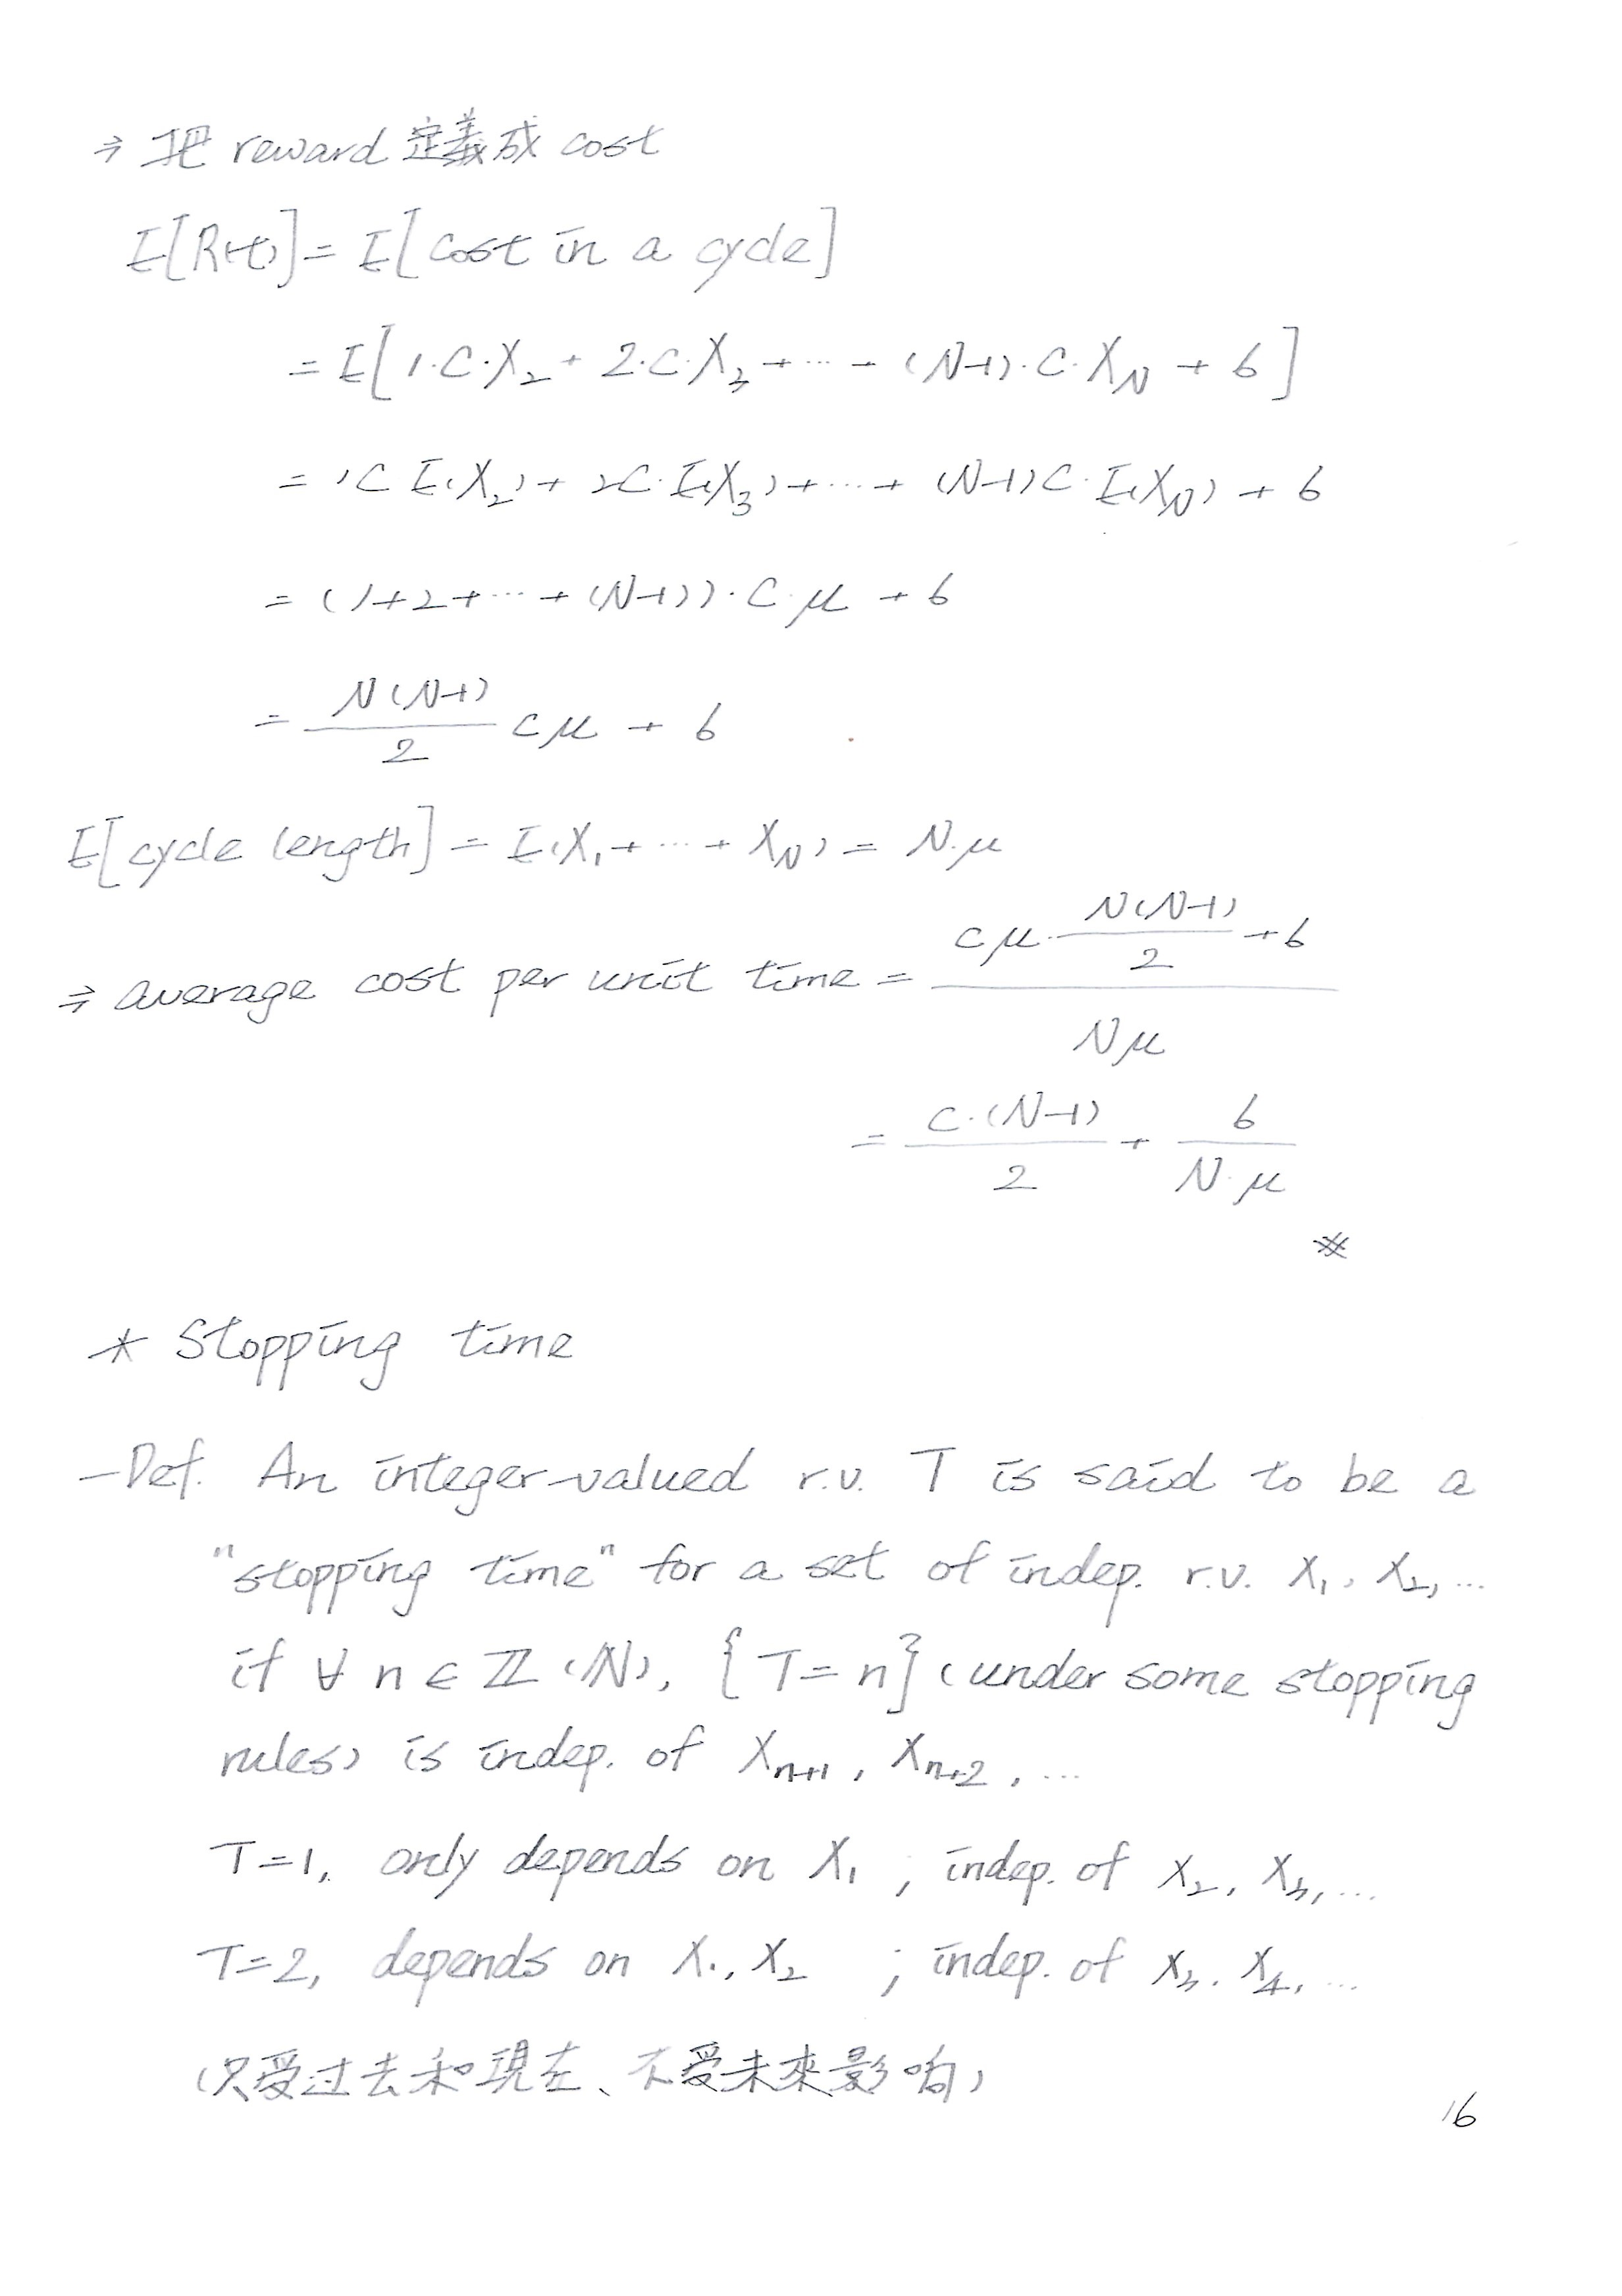 ⇒ 把 reward 定義成 cost
E[R(t)] = E[cost in a cycle]
= E[1·C·X₂ + 2·C·X₃ + ··· + (N-1)·C·X_N + 6]
= 1C E(X₂) + 2C·E(X₃) + ··· + (N-1)C·E(X_N) + 6
= (1+2+···+(N-1))·C·μ + 6
= N(N-1)/2 cμ + 6
E[cycle length] = E(X₁ + ··· + X_N) = N·μ
⇒ average cost per unit time = (cμ·N(N-1)/2 + 6) / Nμ
= C·(N-1)/2 + 6/(N·μ)
※
* Stopping time
—Def. An integer-valued r.v. T is said to be a
"stopping time" for a set of indep. r.v. X₁, X₂, ...
if ∀ n ∈ ℤ (ℕ), {T=n} (under some stopping
rules) is indep. of Xₙ₊₁, Xₙ₊₂, ...
T=1, only depends on X₁ ; indep. of X₂, X₃, ...
T=2, depends on X₁, X₂ ; indep. of X₃, X₄, ...
(只受过去和現在、不受未來影响)
16